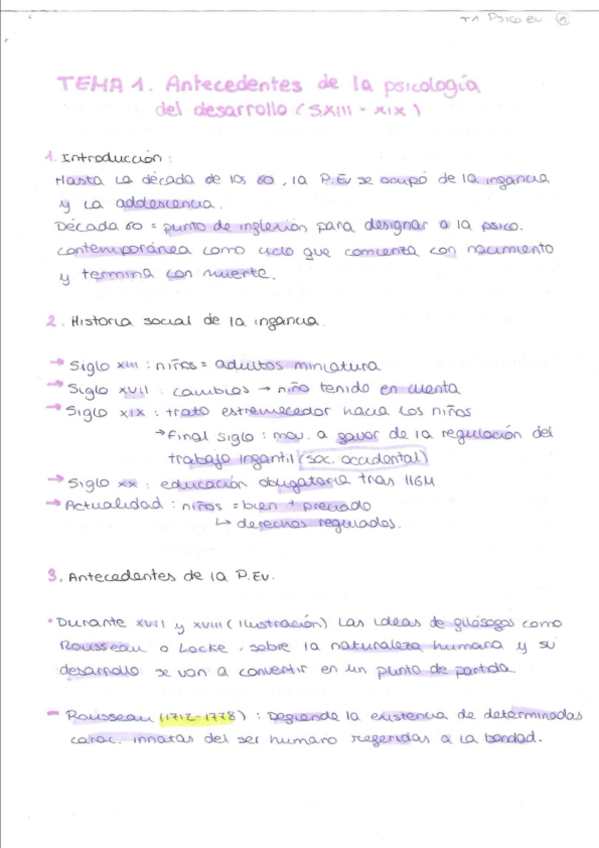 T1 Psico ev 1
TEMA 1. Antecedentes de la psicología
del desarrollo (S.XIII - XIX)
1. Introducción:
Hasta la década de los 60, la P.Ev se ocupó de la infancia
y la adolescencia.
Década 60 = punto de inflexión para designar a la psico.
contemporánea como ciclo que comienza con nacimiento
y termina con muerte.
2. Historia social de la infancia.
→ Siglo XIII: niños = adultos miniatura
→ Siglo XVII: cambios → niño tenido en cuenta
→ Siglo XIX: trato estremecedor hacia los niños
→ Final siglo: mov. a favor de la regulación del
trabajo infantil (soc. occidental)
→ Siglo XX: educación obligatoria tras IIGM
→ Actualidad: niños = bien + preciado
↳ derechos regulados.
3. Antecedentes de la P.Ev.
• Durante XVII y XVIII (Ilustración) las ideas de filósofos como
Rousseau o Locke, sobre la naturaleza humana y su
desarrollo se van a convertir en un punto de partida.
- Rousseau (1712-1778): Defiende la existencia de determinadas
carac. innatas del ser humano referidas a la bondad.